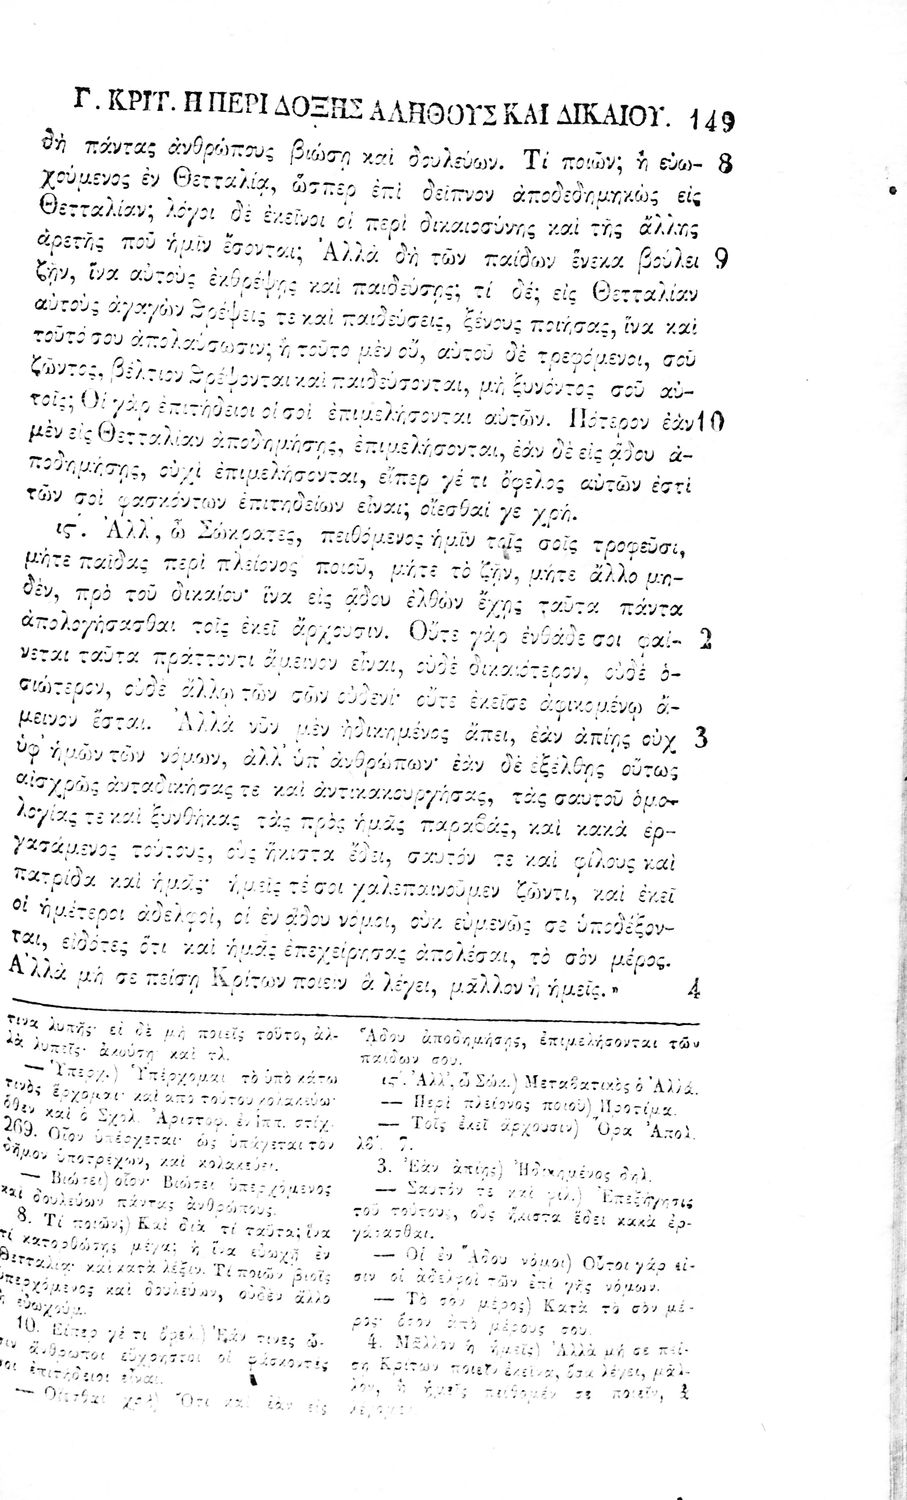 Γ. ΚΡΙΤ. Η ΠΕΡΙ ΔΟΞΗΣ ΑΛΗΘΟΥΣ ΚΑΙ ΔΙΚΑΙΟΥ. 149
δὴ πάντας ἀνθρώπους βιώσῃ καὶ δουλεύων. Τί ποιῶν; ἢ εὐω- 8
χούμενος ἐν Θετταλίᾳ, ὥσπερ ἐπὶ δεῖπνον ἀποδεδημηκὼς εἰς
Θετταλίαν; λόγοι δὲ ἐκεῖνοι οἱ περὶ δικαιοσύνης καὶ τῆς ἄλλης
ἀρετῆς ποῦ ἡμῖν ἔσονται; Ἀλλὰ δὴ τῶν παίδων ἕνεκα βούλει 9
ζῇν, ἵνα αὐτοὺς ἐκθρέψῃς καὶ παιδεύσῃς; τί δέ; εἰς Θετταλίαν
αὐτοὺς ἀγαγὼν θρέψεις τε καὶ παιδεύσεις, ξένους ποιήσας, ἵνα καὶ
τοῦτό σου ἀπολαύσωσιν; ἢ τοῦτο μὲν οὔ, αὐτοῦ δὲ τρεφόμενοι, σοῦ
ζῶντος, βέλτιον θρέψονται καὶ παιδεύσονται, μὴ ξυνόντος σοῦ αὐ-
τοῖς; Οἱ γὰρ ἐπιτήδειοι οἱ σοὶ ἐπιμελήσονται αὐτῶν. Πότερον ἐὰν 10
μὲν εἰς Θετταλίαν ἀποδημήσῃς, ἐπιμελήσονται, ἐὰν δὲ εἰς ᾅδου ἀ-
ποδημήσῃς, οὐχὶ ἐπιμελήσονται, εἴπερ γέ τι ὄφελος αὐτῶν ἐστὶ
τῶν σοὶ φασκόντων ἐπιτηδείων εἶναι; οἴεσθαί γε χρή.
ιϛʹ. Ἀλλ', ὦ Σώκρατες, πειθόμενος ἡμῖν τοῖς σοῖς τροφεῦσι,
μήτε παῖδας περὶ πλείονος ποιοῦ, μήτε τὸ ζῇν, μήτε ἄλλο μη-
δὲν, πρὸ τοῦ δικαίου· ἵνα εἰς ᾅδου ἐλθὼν ἔχῃς ταῦτα πάντα
ἀπολογήσασθαι τοῖς ἐκεῖ ἄρχουσιν. Οὔτε γὰρ ἐνθάδε σοι φαί- 2
νεται ταῦτα πράττοντι ἄμεινον εἶναι, οὐδὲ δικαιότερον, οὐδὲ ὁ-
σιώτερον, οὐδὲ ἄλλῳ τῶν σῶν οὐδενί· οὔτε ἐκεῖσε ἀφικομένῳ ἄ-
μεινον ἔσται. Ἀλλὰ νῦν μὲν ἠδικημένος ἄπει, ἐὰν ἀπίῃς οὐχ 3
ὑφ' ἡμῶν τῶν νόμων, ἀλλ' ὑπ' ἀνθρώπων· ἐὰν δὲ ἐξέλθῃς οὕτως
αἰσχρῶς ἀνταδικήσας τε καὶ ἀντικακουργήσας, τὰς σαυτοῦ ὁμο-
λογίας τε καὶ ξυνθήκας τὰς πρὸς ἡμᾶς παραβὰς, καὶ κακὰ ἐρ-
γασάμενος τούτους, οὓς ἥκιστα ἔδει, σαυτόν τε καὶ φίλους καὶ
πατρίδα καὶ ἡμᾶς· ἡμεῖς τέ σοι χαλεπαινοῦμεν ζῶντι, καὶ ἐκεῖ
οἱ ἡμέτεροι ἀδελφοὶ, οἱ ἐν ᾅδου νόμοι, οὐκ εὐμενῶς σε ὑποδέξον-
ται, εἰδότες ὅτι καὶ ἡμᾶς ἐπεχείρησας ἀπολέσαι, τὸ σὸν μέρος.
Ἀλλὰ μή σε πείσῃ Κρίτων ποιεῖν ἃ λέγει, μᾶλλον ἢ ἡμεῖς.» 4
τινα λυπῇς· εἰ δὲ μὴ ποιεῖς τοῦτο, ἀλ-
λὰ λυπεῖς· ἀκούσῃ καὶ τλ.
— Ὑπερχ.) Ὑπέρχομαι τὸ ὑπὸ κάτω
τινὸς ἔρχομαι· καὶ ἀπὸ τούτου κολακεύω·
ὅθεν καὶ ὁ Σχολ. Ἀριστοφ. ἐν ἱππ. στίχ.
269. Οἷον ὑπέρχεται· ὡς ὑπάγεται τὸν
δῆμον ὑποτρέχων, καὶ κολακεύει.
— Βιώσει) οἷον· Βιώσει ὑπερχόμενος
καὶ δουλεύων πάντας ἀνθρώπους.
8. Τί ποιῶν;) Καὶ διὰ τί ταῦτα; ἵνα
τί κατορθώσῃς μέγα; ἢ ἵνα εὐωχῇ ἐν
Θετταλίᾳ· καὶ κατὰ λέξιν. Τί ποιῶν βιοῖς
ὑπερχόμενος καὶ δουλεύων, οὐδὲν ἄλλο
ἢ εὐωχούμ.
10. Εἴπερ γέ τι ὄφελ.) Ἐάν τινες ὦ-
σιν ἄνθρωποι εὔχρηστοι οἱ φάσκοντές
σοι ἐπιτήδειοι εἶναι.
— Οἴεσθαι χρὴ) Ὅτι καὶ ἐὰν εἰς
Ἅδου ἀποδημήσῃς, ἐπιμελήσονται τῶν
παίδων σου.
ιϛʹ. Ἀλλ', ὦ Σώκ.) Μεταβατικὸς ὁ Ἀλλά.
— Περὶ πλείονος ποιοῦ) Προτίμα.
— Τοῖς ἐκεῖ ἄρχουσιν) Ὅρα Ἀπολ.
λβʹ. 7.
3. Ἐὰν ἀπίῃς) Ἠδικημένος δηλ.
— Σαυτόν τε καὶ φίλ.) Ἐπεξήγησις
τοῦ τούτους, οὓς ἥκιστα ἔδει κακὰ ἐρ-
γάσασθαι.
— Οἱ ἐν Ἅδου νόμοι) Οὗτοι γάρ εἰ-
σιν οἱ ἀδελφοὶ τῶν ἐπὶ γῆς νόμων.
— Τὸ σὸν μέρος) Κατὰ τὸ σὸν μέ-
ρος· ὅσον ἀπὸ μέρους σου.
4. Μᾶλλον ἢ ἡμεῖς) Ἀλλὰ μή σε πεί-
σῃ Κρίτων ποιεῖν ἐκεῖνα, ὅσα λέγει, μᾶλ-
λον, ἢ ἡμεῖς πείθομέν σε ποιεῖν, ἃ
λέγομεν